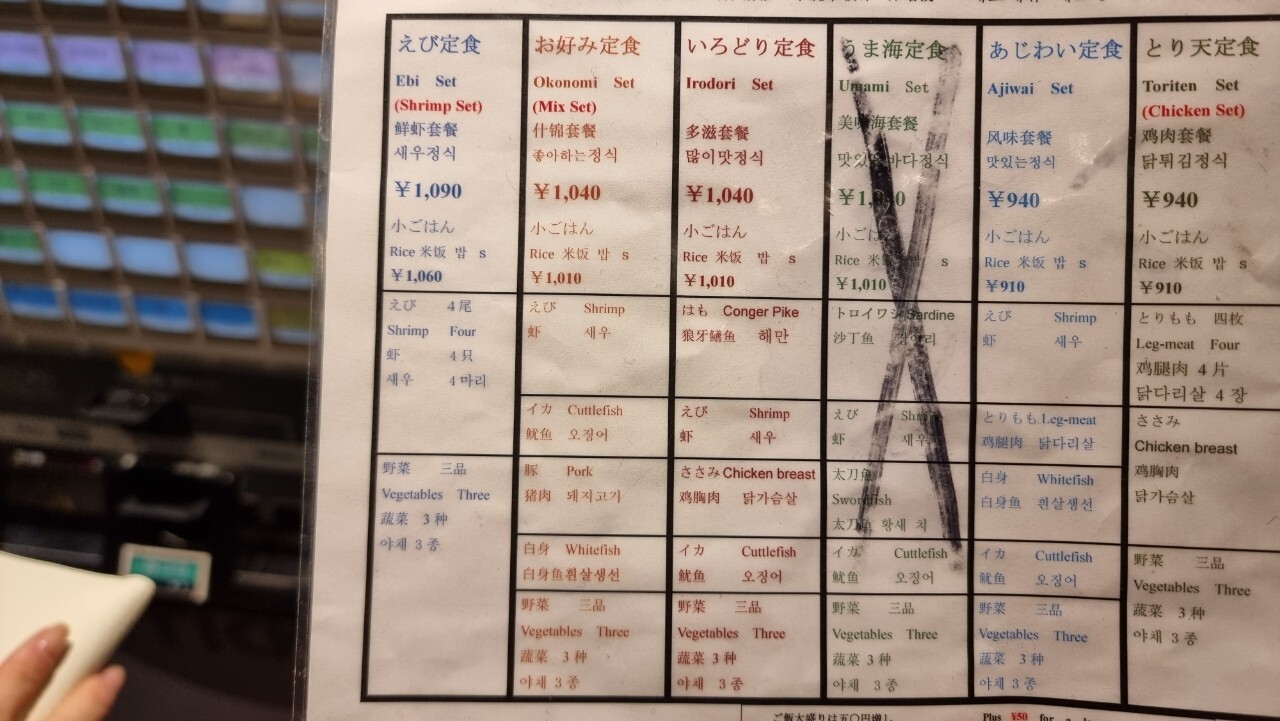 えび定食
Ebi Set
(Shrimp Set)
鲜虾套餐
새우정식
￥1,090
小ごはん
Rice 米饭 밥 s
￥1,060
えび 4尾
Shrimp Four
虾 4只
새우 4마리
野菜 三品
Vegetables Three
蔬菜 3种
야채 3종
お好み定食
Okonomi Set
(Mix Set)
什锦套餐
좋아하는정식
￥1,040
小ごはん
Rice 米饭 밥 s
￥1,010
えび Shrimp
虾 새우
イカ Cuttlefish
鱿鱼 오징어
豚 Pork
猪肉 돼지고기
白身 Whitefish
白身鱼흰살생선
野菜 三品
Vegetables Three
蔬菜 3种
야채 3종
いろどり定食
Irodori Set
多滋套餐
많이맛정식
￥1,040
小ごはん
Rice 米饭 밥 s
￥1,010
はも Conger Pike
狼牙鳝鱼 해만
えび Shrimp
虾 새우
ささみ Chicken breast
鸡胸肉 닭가슴살
イカ Cuttlefish
鱿鱼 오징어
野菜 三品
Vegetables Three
蔬菜 3种
야채 3종
うま海定食
Umami Set
美味海套餐
바다정식
小ごはん
Rice 米饭 s
￥1,010
トロイワシ Sardine
沙丁鱼
えび Shrimp
虾 새우
太刀魚
Swordfish
太刀鱼 황새 치
イカ Cuttlefish
鱿鱼 오징어
野菜 三品
Vegetables Three
蔬菜 3种
야채 3종
あじわい定食
Ajiwai Set
风味套餐
맛있는정식
￥940
小ごはん
Rice 米饭 밥 s
￥910
えび Shrimp
虾 새우
とりもも Leg-meat
鸡腿肉 닭다리살
白身 Whitefish
白身鱼 흰살생선
イカ Cuttlefish
鱿鱼 오징어
野菜 三品
Vegetables Three
蔬菜 3种
야채 3종
とり天定食
Toriten Set
(Chicken Set)
鸡肉套餐
닭튀김정식
￥940
小ごはん
Rice 米饭 밥 s
￥910
とりもも 四枚
Leg-meat Four
鸡腿肉 4片
닭다리살 4장
ささみ
Chicken breast
鸡胸肉
닭가슴살
野菜 三品
Vegetables Three
蔬菜 3种
야채 3종
ご飯大盛りは五〇円増し
Plus ¥50 for a